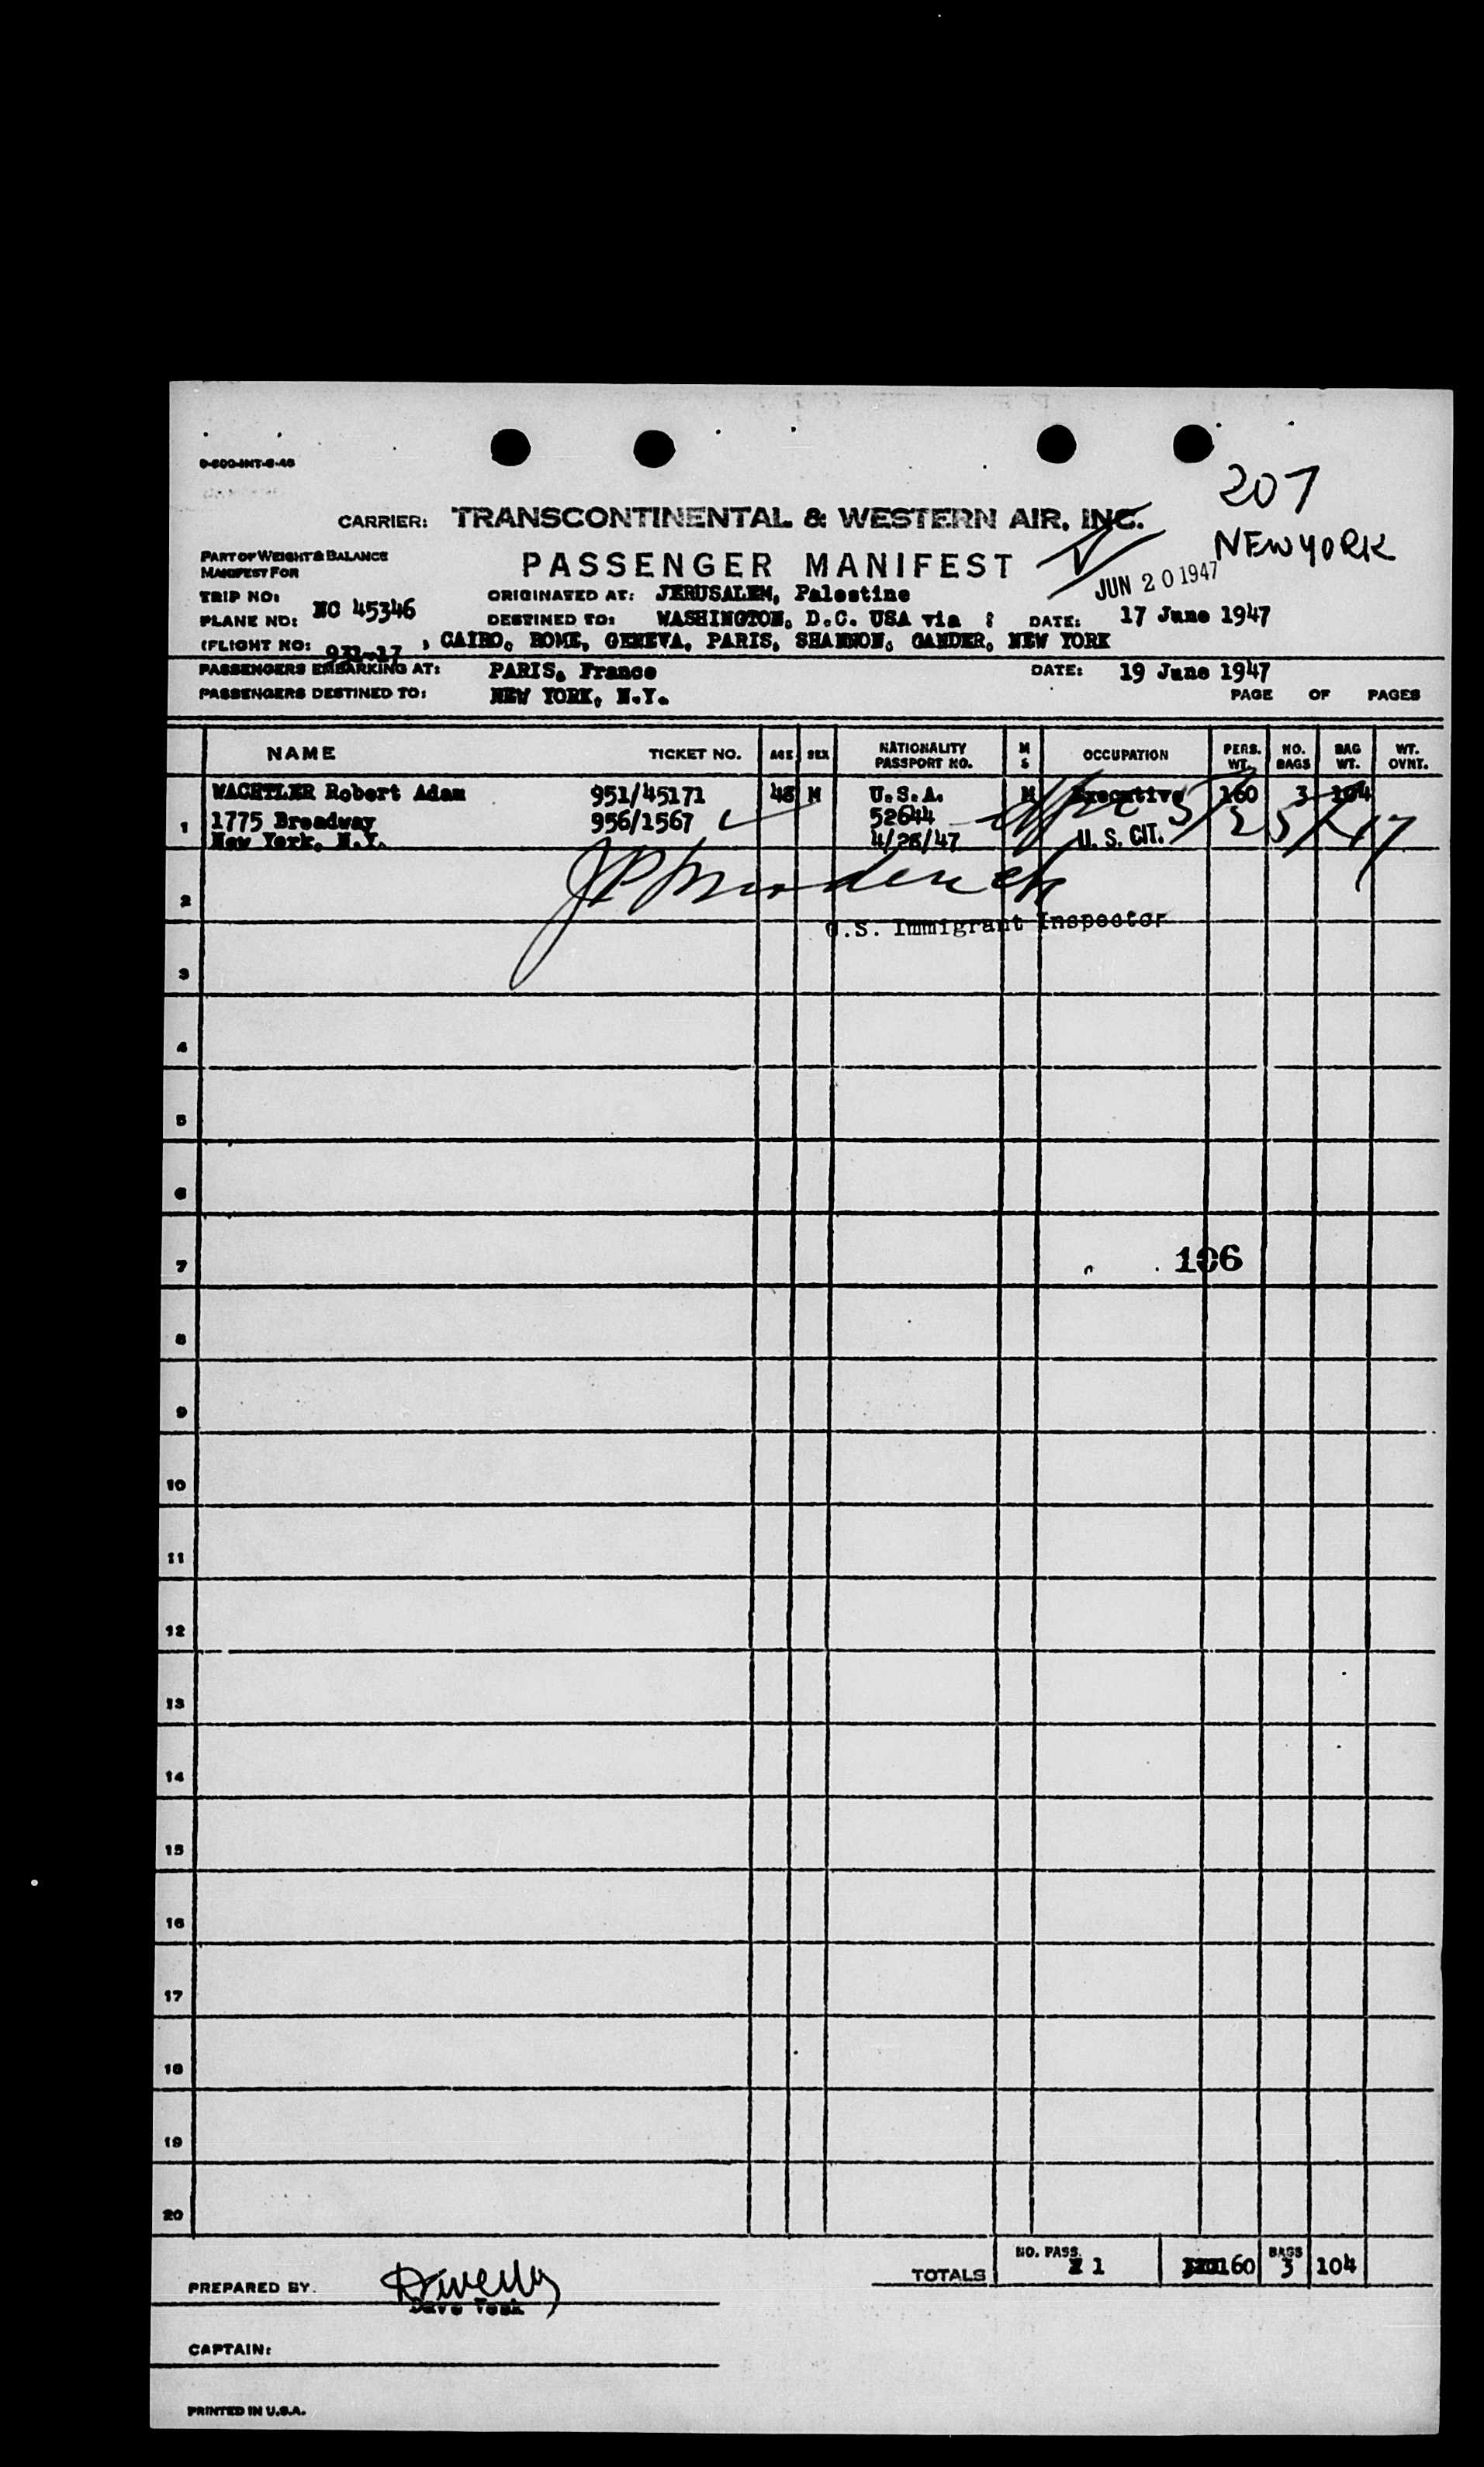 9-600-INT-6-46
207
CARRIER: TRANSCONTINENTAL & WESTERN AIR, INC.
NEW YORK
PART OF WEIGHT & BALANCE
MANIFEST FOR
PASSENGER MANIFEST
JUN 20 1947
TRIP NO:
ORIGINATED AT: JERUSALEM, Palestine
PLANE NO: NC 45346
DESTINED TO: WASHINGTON, D.C. USA via : DATE: 17 June 1947
(FLIGHT NO: 931-17 , CAIRO, ROME, GENEVA, PARIS, SHANNON, GANDER, NEW YORK
PASSENGERS EMBARKING AT: PARIS, France DATE: 19 June 1947
PASSENGERS DESTINED TO: NEW YORK, N.Y. PAGE OF PAGES
NAME TICKET NO. AGE SEX NATIONALITY PASSPORT NO. M S OCCUPATION PERS. WT. NO. BAGS BAG WT. WT. OVNT.
WACHTLER Robert Adam 951/45171 48 M U.S.A. M Executive 160 3 104
1 1775 Broadway 956/1567 52644
New York, N.Y. 4/28/47 U. S. CIT.
2
U.S. Immigrant Inspector
3
4
5
6
7 106
8
9
10
11
12
13
14
15
16
17
18
19
20
TOTALS NO. PASS. 1 160 BAGS 3 104
PREPARED BY.
CAPTAIN:
PRINTED IN U.S.A.